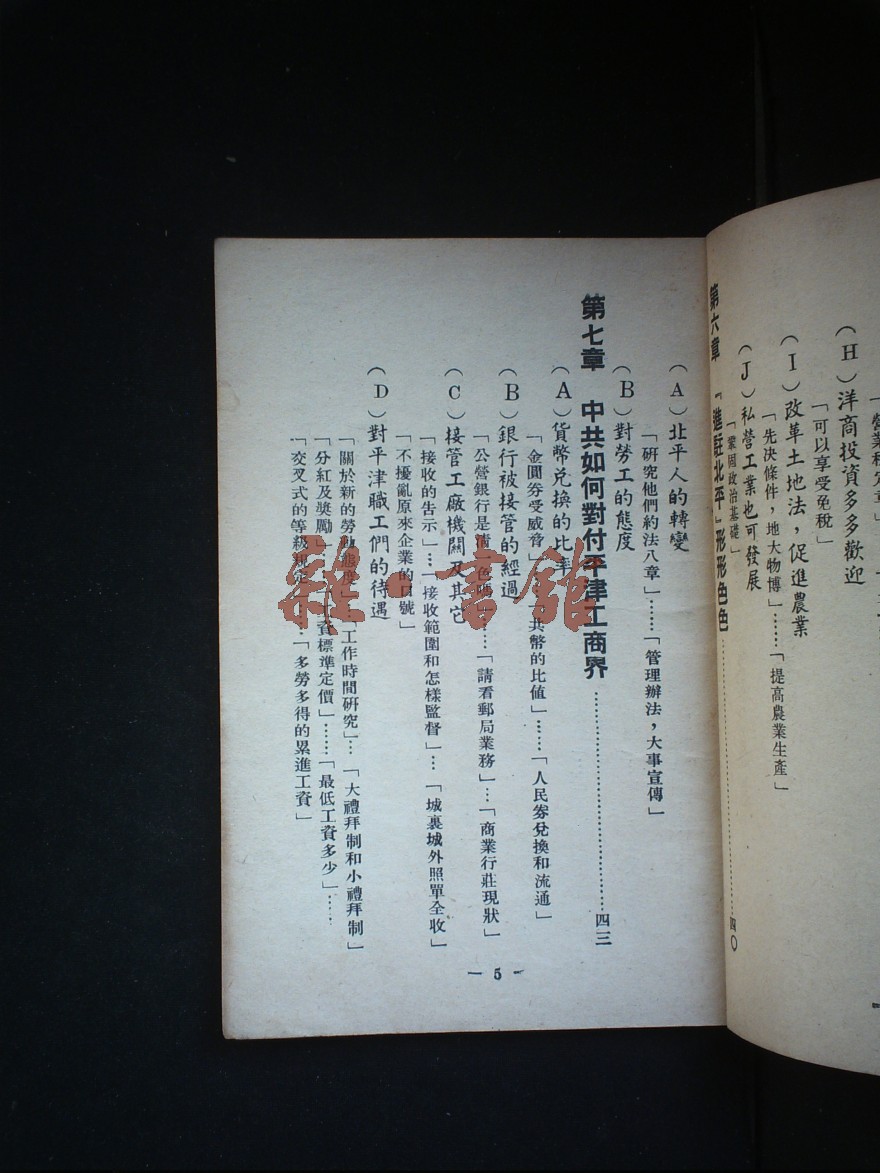 (H)洋商投資多多歡迎
「可以享受免稅」
(I)改革土地法，促進農業
「先決條件，地大物博」……「提高農業生產」
(J)私營工業也可發展
「鞏固政治基礎」
第六章 「進駐北平」形形色色……四〇
(A)北平人的轉變
「研究他們約法八章」……「管理辦法，大事宣傳」
(B)對勞工的態度
第七章 中共如何對付平津工商界……四三
(A)貨幣兌換的比率
「金圓券受威脅」……共幣的比值」……「人民券兌換和流通」
(B)銀行被接管的經過
「公營銀行是清一色嗎」……「請看郵局業務」…「商業行莊現狀」
(C)接管工廠機關及其它
「接收的告示」…「接收範圍和怎樣監督」…「城裏城外照單全收」
「不擾亂原來企業的口號」
(D)對平津職工們的待遇
「關於新的勞動態度」…「工作時間研究」…「大禮拜制和小禮拜制」
「分紅及獎勵」……工資標準定價」……「最低工資多少」……
「交叉式的等級規定」……「多勞多得的累進工資」
— 5 -
雜·書館